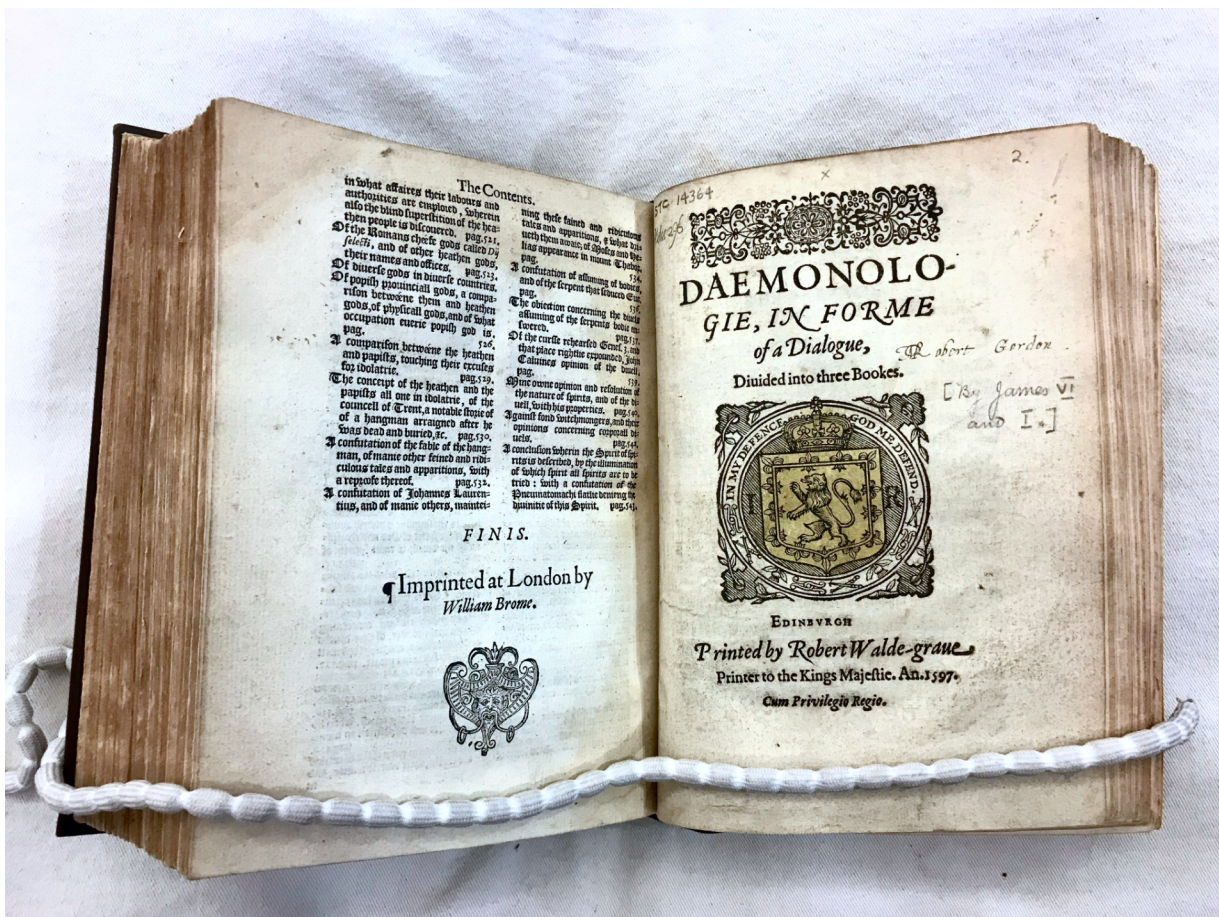 The Contents.
in what affaires their labours and
authorities are emploied, wherein
also the blind superstition of the hea-
then people is discouered. pag.521.
Of the Romans cheefe gods called Dij
selecti, and of other heathen gods,
their names and offices. pag.523.
Of diuerse gods in diuerse countries.
Of popish prouinciall gods, a compa-
rison betweene them and heathen
gods, of physicall gods, and of what
occupation euerie popish god is.
pag. 526.
A comparison betweene the heathen
and papists, touching their excuses
for idolatrie. pag.529.
The conceipt of the heathen and the
papists all one in idolatrie, of the
councell of Trent, a notable storie of
of a hangman arraigned after he
was dead and buried, &c. pag.530.
A confutation of the fable of the hang-
man, of manie other feined and ridi-
culous tales and apparitions, with
a reproofe thereof. pag.532.
A confutation of Johannes Lauren-
tius, and of manie others, maintei-
ning these fained and ridiculous
tales and apparitions, & what driu-
ueth them awaie; of Moses and He-
lias appearance in mount Thabor.
pag. 534.
A confutation of assuming of bodies,
and of the serpent that seduced Eue.
pag. 536.
The obiection concerning the diuels
assuming of the serpents bodie an-
swered. pag.537.
Of the cursse rehearsed Genes. 3. and
that place rightlie expounded, John
Caluines opinion of the diuell.
pag. 539.
Mine owne opinion and resolution of
the nature of spirits, and of the di-
uell, with his properties. pag.540.
Against fond witchmongers, and their
opinions concerning corporall di-
uels. pag.542.
A conclusion wherin the Spirit of spi-
rits is described, by the illumination
of which spirit all spirits are to be
tried: with a confutation of the
Pneumatomachi flatlie denieng the
diuinitie of this Spirit. pag.543.
FINIS.
¶Imprinted at London by
William Brome.
2.
x
STC 14364
DAEMONOLO-
GIE, IN FORME
of a Dialogue,
Robert Gordon
Diuided into three Bookes.
[By James VI
and I.]
IN MY DEFENCE GOD ME DEFEND.
I R
EDINBVRGH
Printed by Robert Walde-graue
Printer to the Kings Majestie. An.1597.
Cum Privilegio Regio.